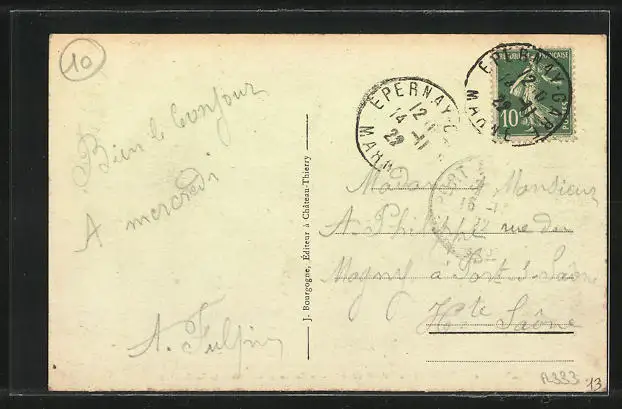 10
Bien le bonjour
A mercredi
J. Bourgogne, Éditeur à Château-Thierry
EPERNAY
12
14 - 11
22
MARNE
EPERNAY
MARNE
RÉPUBLIQUE FRANÇAISE
10c
POSTES
PORT
16
Madame & Monsieur
A. Philippe rue du
Magny à Port s. Saône
Hte Saône
A333
13